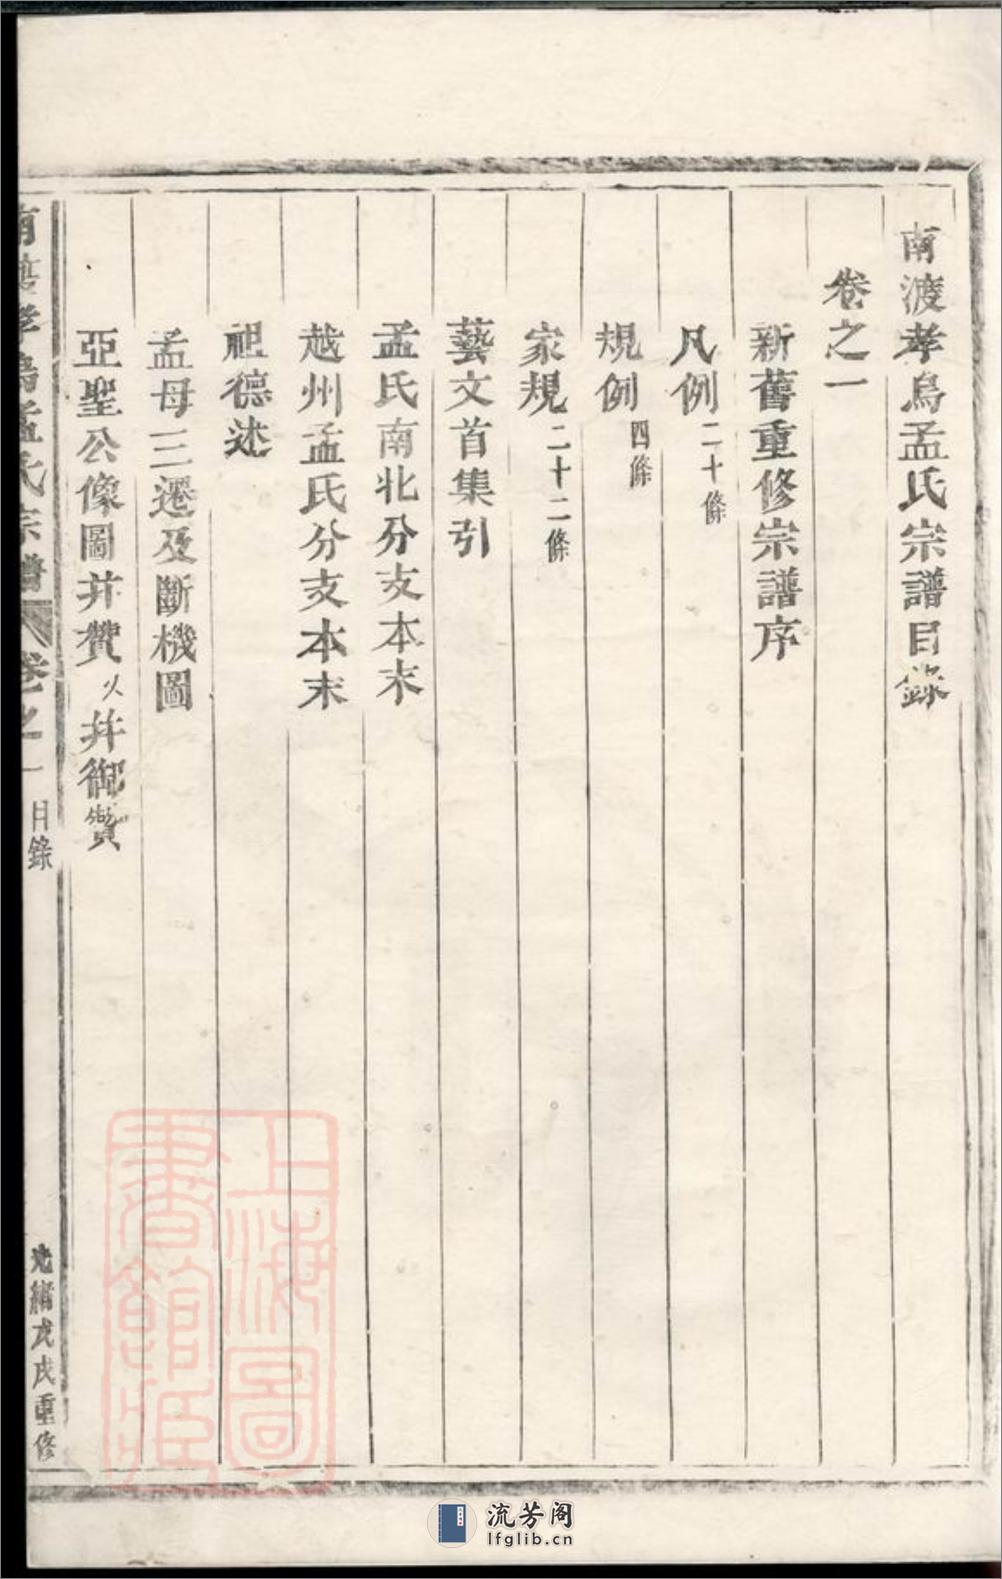 南渡孝烏孟氏宗譜目錄
卷之一
新舊重修宗譜序
凡例 二十條
規例 四條
家規 二十二條
藝文首集引
孟氏南北分支本末
越州孟氏分支本末
祖德述
孟母三遷及斷機圖
亞聖公像圖并贊 并御贊
南渡孝烏孟氏宗譜 卷之一 目錄 光緒戊戌重修
上海圖書館藏
流芳阁
lfglib.cn